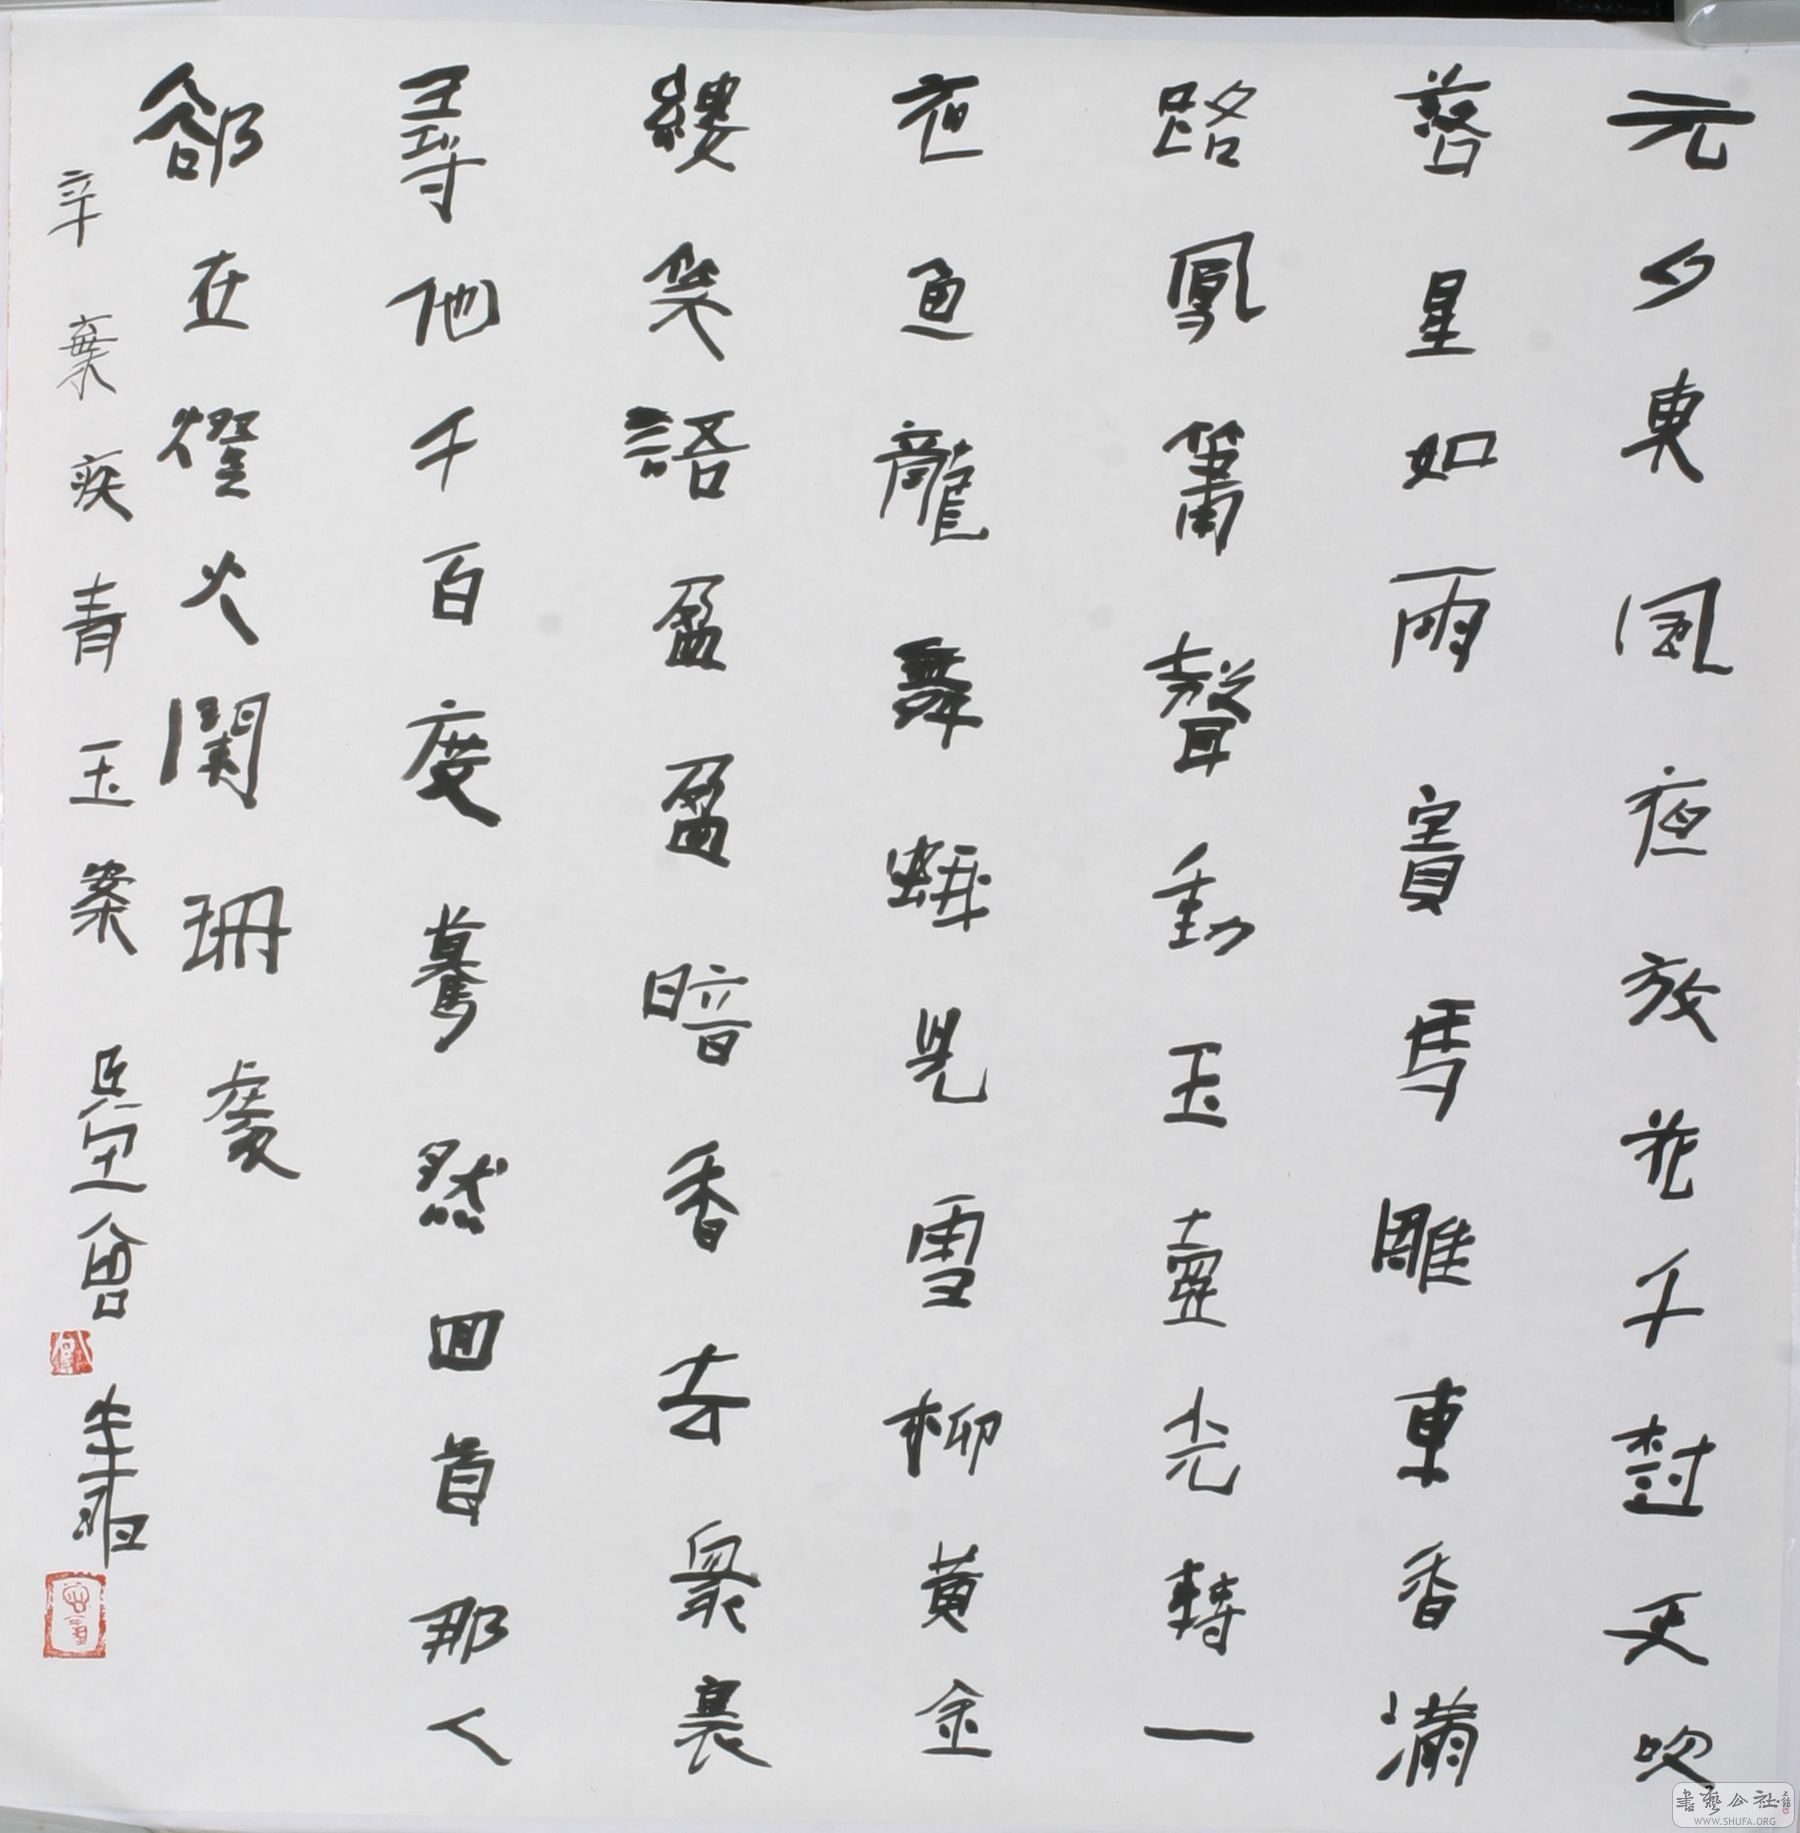 元夕東風夜放花千樹更吹
落星如雨寶馬雕車香滿
路鳳簫聲動玉壺光轉一
夜魚龍舞蛾兒雪柳黃金
縷笑語盈盈暗香去眾裏
尋他千百度驀然回首那人
卻在燈火闌珊處
辛棄疾青玉案
書藝公社
WWW.SHUFA.ORG